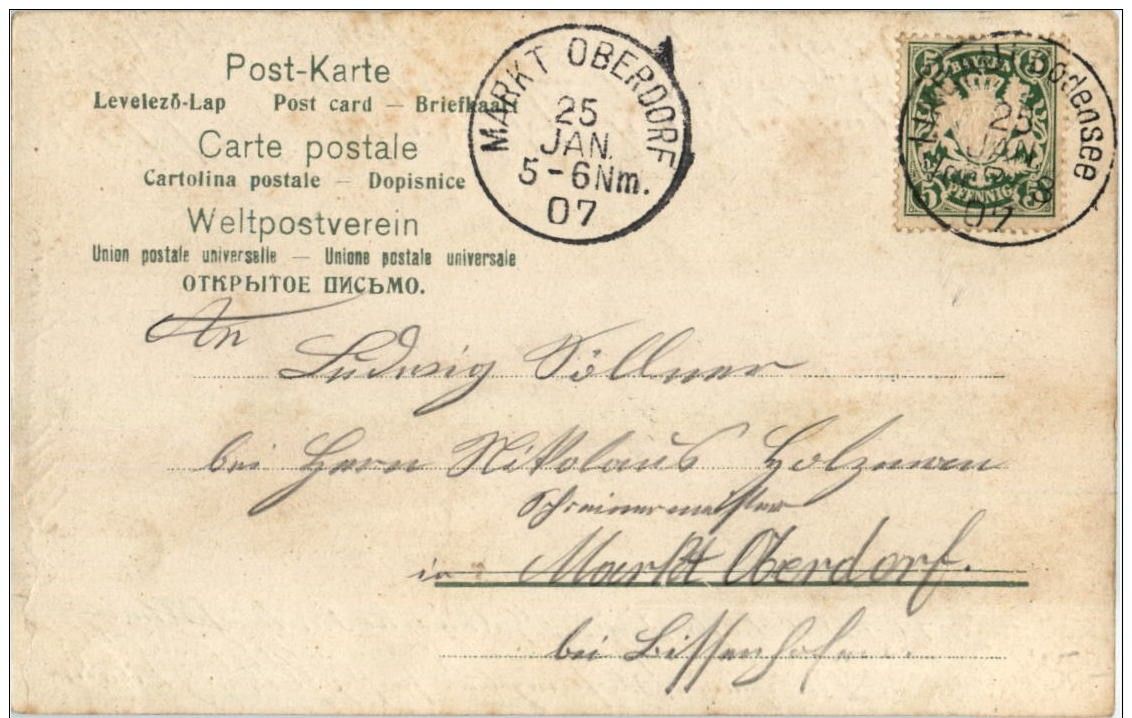 Post-Karte
Levelező-Lap Post card – Briefkaart
Carte postale
Cartolina postale – Dopisnice
Weltpostverein
Union postale universelle – Unione postale universale
ОТКРЫТОЕ ПИСЬМО.
MARKT OBERDORF
25
JAN.
5-6Nm.
07
Bodensee
25
JAN.
07
5 5
BAYERN
PFENNIG
5 5
An
Ludwig Söllner
bei Herrn Nikolaus Holzman
Schreinermeister
in Markt Oberdorf.
bei Bissenhofen.